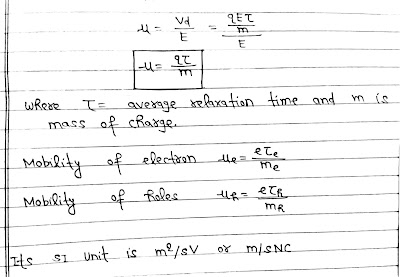 μ = Vd/E = (qEτ/m)/E
μ = qτ/m
where τ = average relaxation time and m is
mass of charge.
Mobility of electron μe = eτe/me
Mobility of holes μh = eτh/mh
Its SI unit is m²/sV or m/sNC